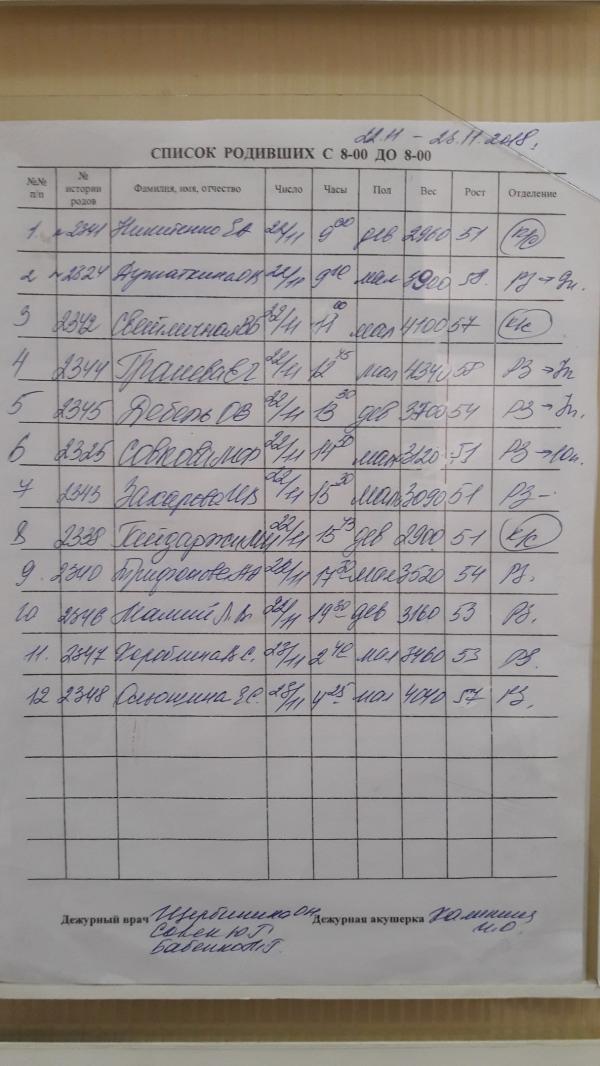 22.11 - 23.11.2018,
СПИСОК РОДИВШИХ С 8-00 ДО 8-00
№№ п/п № истории родов Фамилия, имя, отчество Число Часы Пол Вес Рост Отделение
1. 2341 Никитенко 22/11 9 00 дев 2960 51 К/С
2 2324 22/11 9 мал 3900 58. РЗ → 9п.
3 2342 Светличная 22/11 11 00 мал 4100 57 К/С
4 2344 22/11 12 45 мал 4340 58 РЗ → 7п
5 2345 ОВ 22/11 13 30 дев 3700 54 РЗ → 7п.
6 2325 22/11 14 мал 3120 51 РЗ → 10п.
7 2343 Захарова 22/11 15 30 мал 3090 51 РЗ -
8 2338 Гайдаржи 22/11 15 43 дев 2900 51 К/С
9. 2340 Трифонова 22/11 17 50 мал 3520 54 РЗ.
10 2346 22/11 19 30 дев 3160 53 РЗ.
11. 2347 С. 23/11 2 40 мал 3460 53 РЗ.
12 2348 Е.С. 23/11 4 25 мал 4040 57 РЗ.
Дежурный врач Щербинина Дежурная акушерка
Ю.Г.
Бабенко